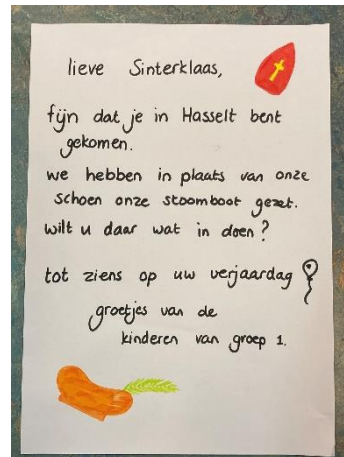 lieve Sinterklaas,
fijn dat je in Hasselt bent
gekomen.
we hebben in plaats van onze
schoen onze stoomboot gezet.
wilt u daar wat in doen?
tot ziens op uw verjaardag
groetjes van de
kinderen van groep 1.